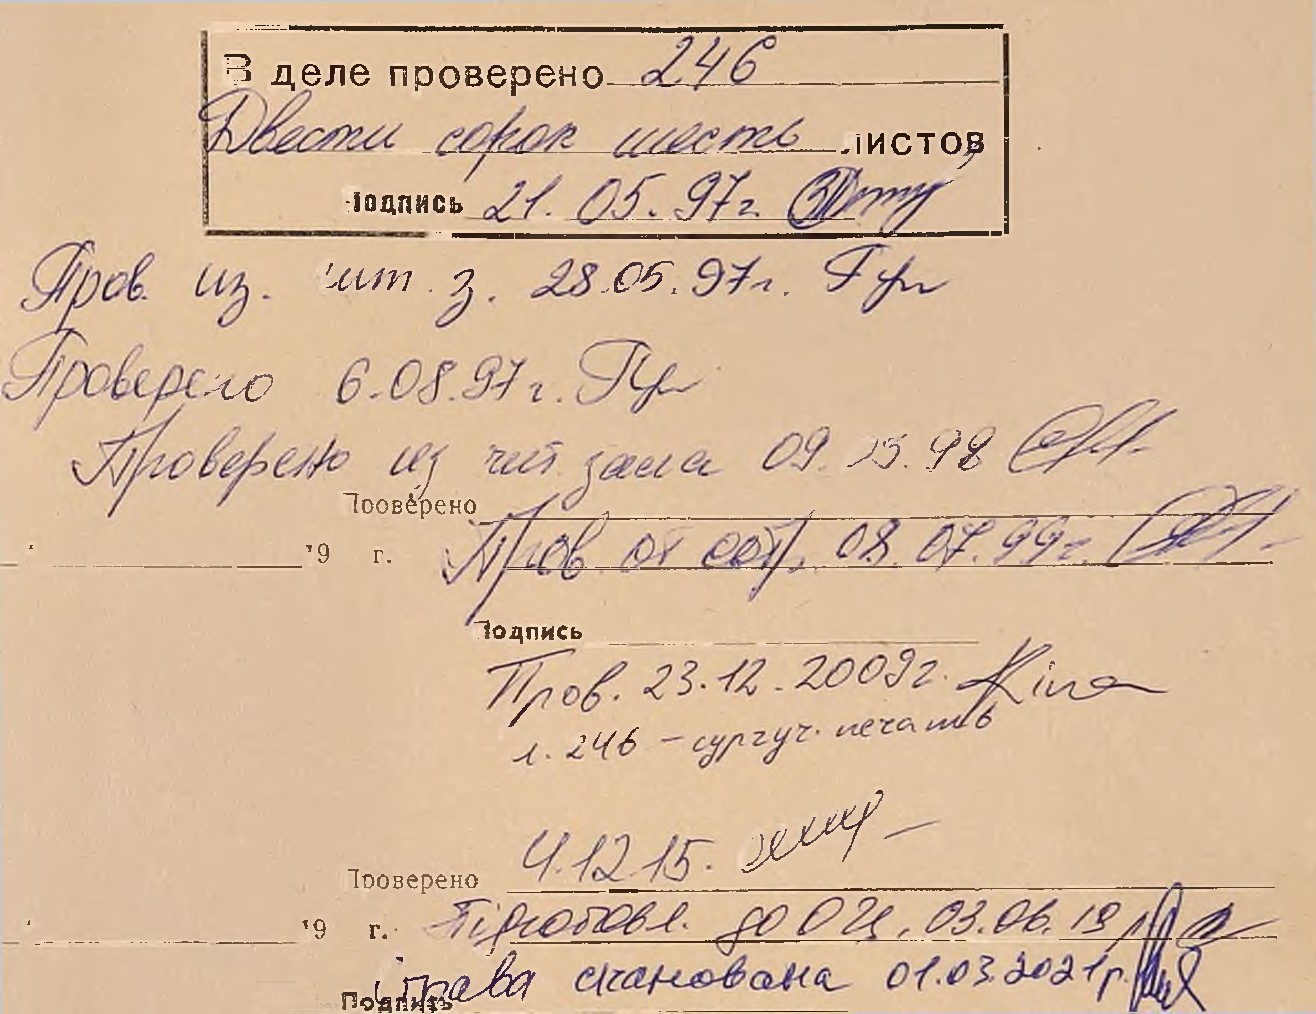 В деле проверено 246
Двести сорок шесть листов
Подпись 21.05.97г.
Пров. из. чит. з. 28.05.97г. Гур
Проверено 6.08.97г. Гур
Проверено из чит. зала 09. 98
Проверено
"19 г. Пров. от сотр. 08.07.99г.
Подпись
Пров. 23.12.2009г.
л. 246 – сургуч. печать
Проверено 4.12.15.
"19 г. Підготовл. до ОЦ. 03.06.19р
Подпись Справа сканована 01.03.2021р.